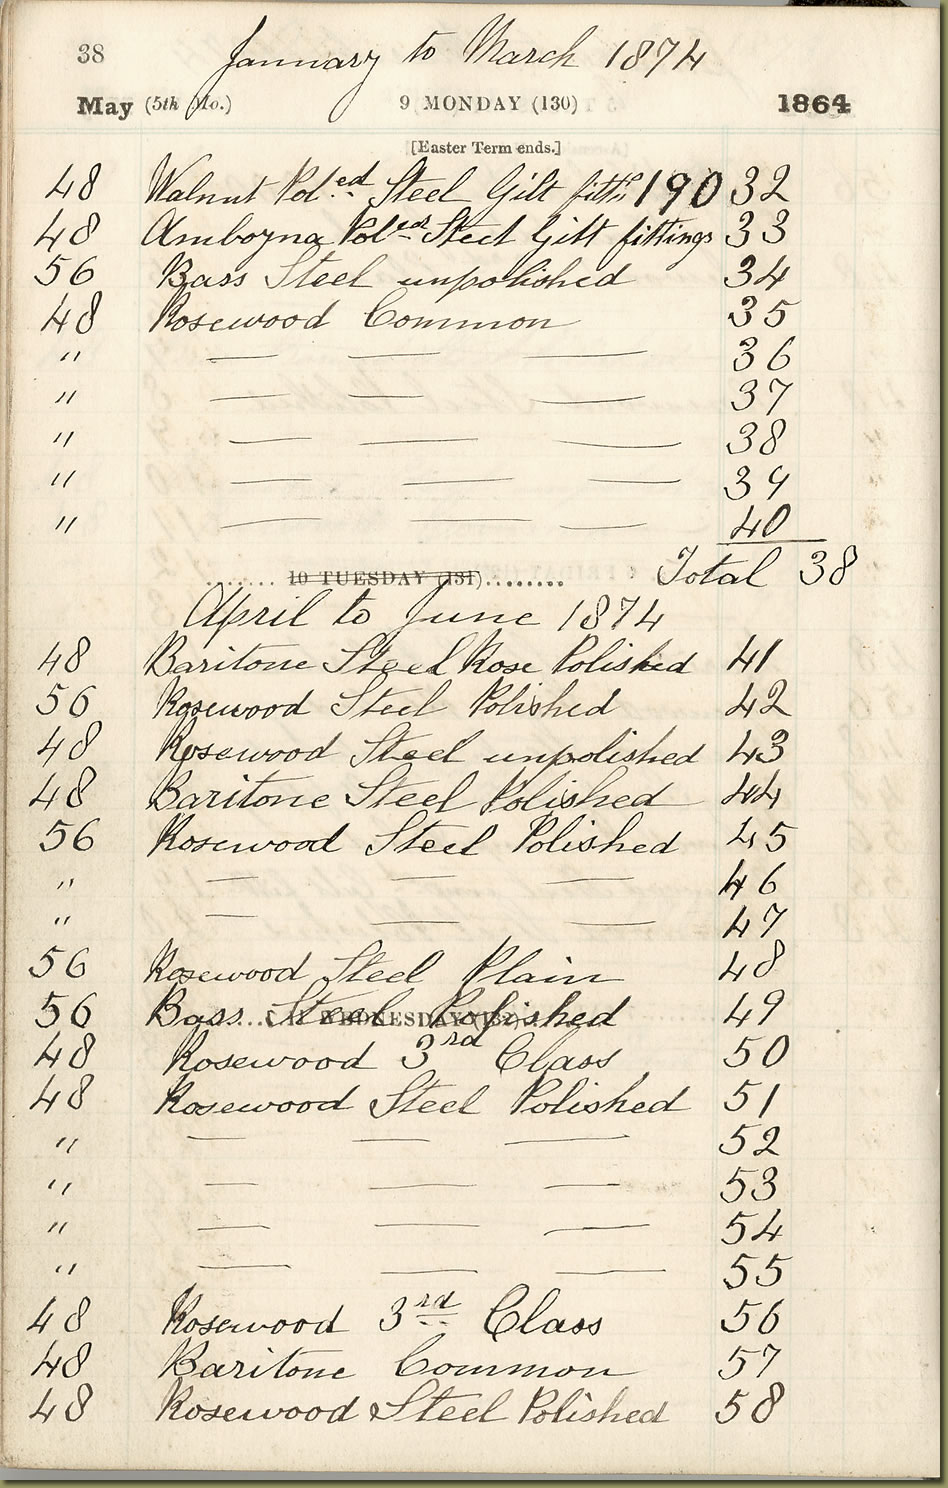 38 January to March 1874
May (5th Mo.) 9 MONDAY (130) 1864
[Easter Term ends.]
48 Walnut Pol.ed Steel Gilt fittgs 190 32
48 Amboyna Poled Steel Gilt fittings 33
56 Bass Steel unpolished 34
48 Rosewood Common 35
" — — — 36
" — — — 37
" — — — 38
" — — — 39
" — — — 40
10 TUESDAY (131) Total 38
April to June 1874
48 Baritone Steel Rose Polished 41
56 Rosewood Steel Polished 42
48 Rosewood Steel unpolished 43
48 Baritone Steel Polished 44
56 Rosewood Steel Polished 45
" — — — 46
" — — — 47
56 Rosewood Steel Plain 48
56 Bass Steel Polished 49
11 WEDNESDAY (132)
48 Rosewood 3rd Class 50
48 Rosewood Steel Polished 51
" — — — 52
" — — — 53
" — — — 54
" — — — 55
48 Rosewood 3rd Class 56
48 Baritone Common 57
48 Rosewood Steel Polished 58